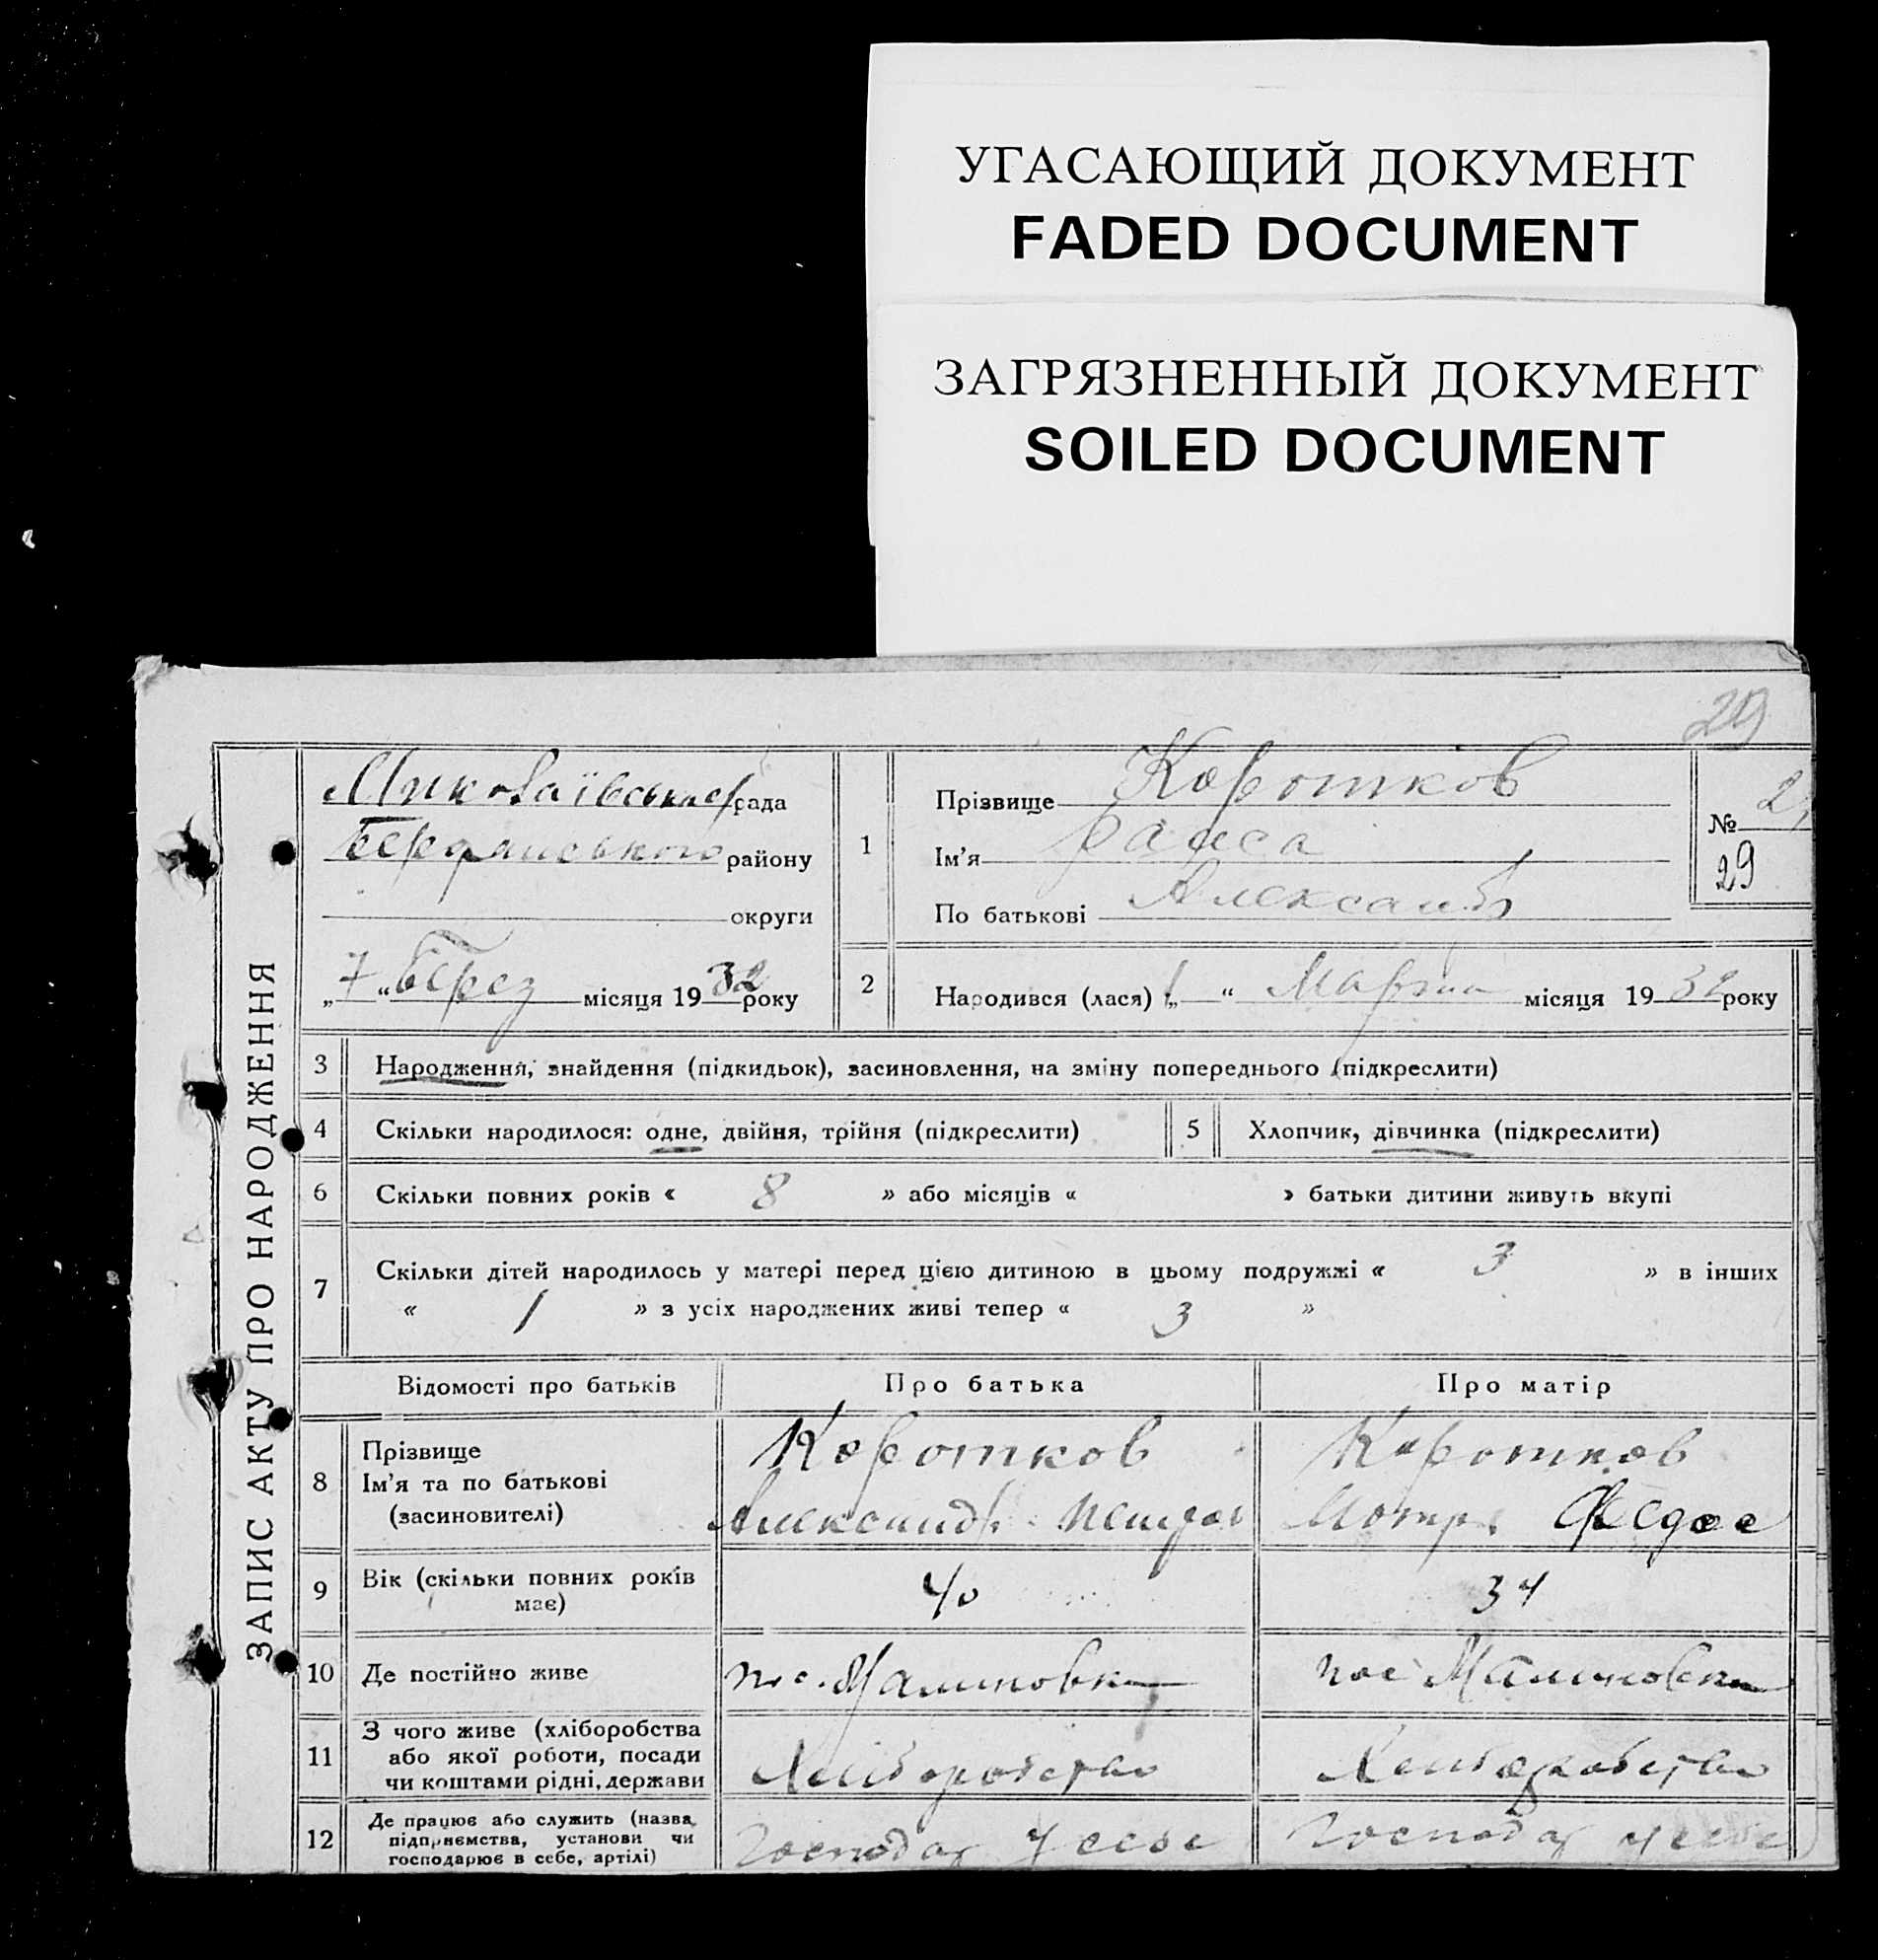 УГАСАЮЩИЙ ДОКУМЕНТ
FADED DOCUMENT
ЗАГРЯЗНЕННЫЙ ДОКУМЕНТ
SOILED DOCUMENT
29
ЗАПИС АКТУ ПРО НАРОДЖЕННЯ
Миколаївська рада
Бердянського району
округи
„7“ Берез місяця 1932 року
1
Прізвище Коротков
Ім’я раиса
По батькові Александ
№
29
2
Народився (лася) „1“ Марта місяця 1932 року
3 Народження, знайдення (підкидьок), засиновлення, на зміну попереднього (підкреслити)
4 Скільки народилося: одне, двійня, трійня (підкреслити)
5 Хлопчик, дівчинка (підкреслити)
6 Скільки повних років « 8 » або місяців « » батьки дитини живуть вкупі
7 Скільки дітей народилось у матері перед цією дитиною в цьому подружжі « 3 » в інших
« 1 » з усіх народжених живі тепер « 3 »
Відомості про батьків Про батька Про матір
8 Прізвище Коротков Коротков
Ім’я та по батькові
(засиновителі) Александ. Петров Мотр. Федос
9 Вік (скільки повних років має) 40 34
10 Де постійно живе пос. Малиновка пос Малиновка
11 З чого живе (хліборобства
або якої роботи, посади
чи коштами рідні, держави
Хлиборобство Хлиборобство
12 Де працює або служить (назва
підприємства, установи чи
господарює в себе, артілі)
Господар у себе Господар у себе